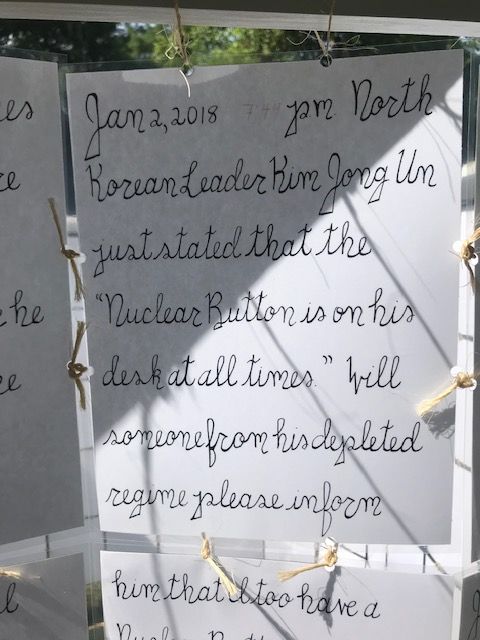 Jan 2, 2018 7:44 pm North
Korean Leader Kim Jong Un
just stated that the
"Nuclear Button is on his
desk at all times." Will
someone from his depleted
regime please inform
him that I too have a
Nuclear